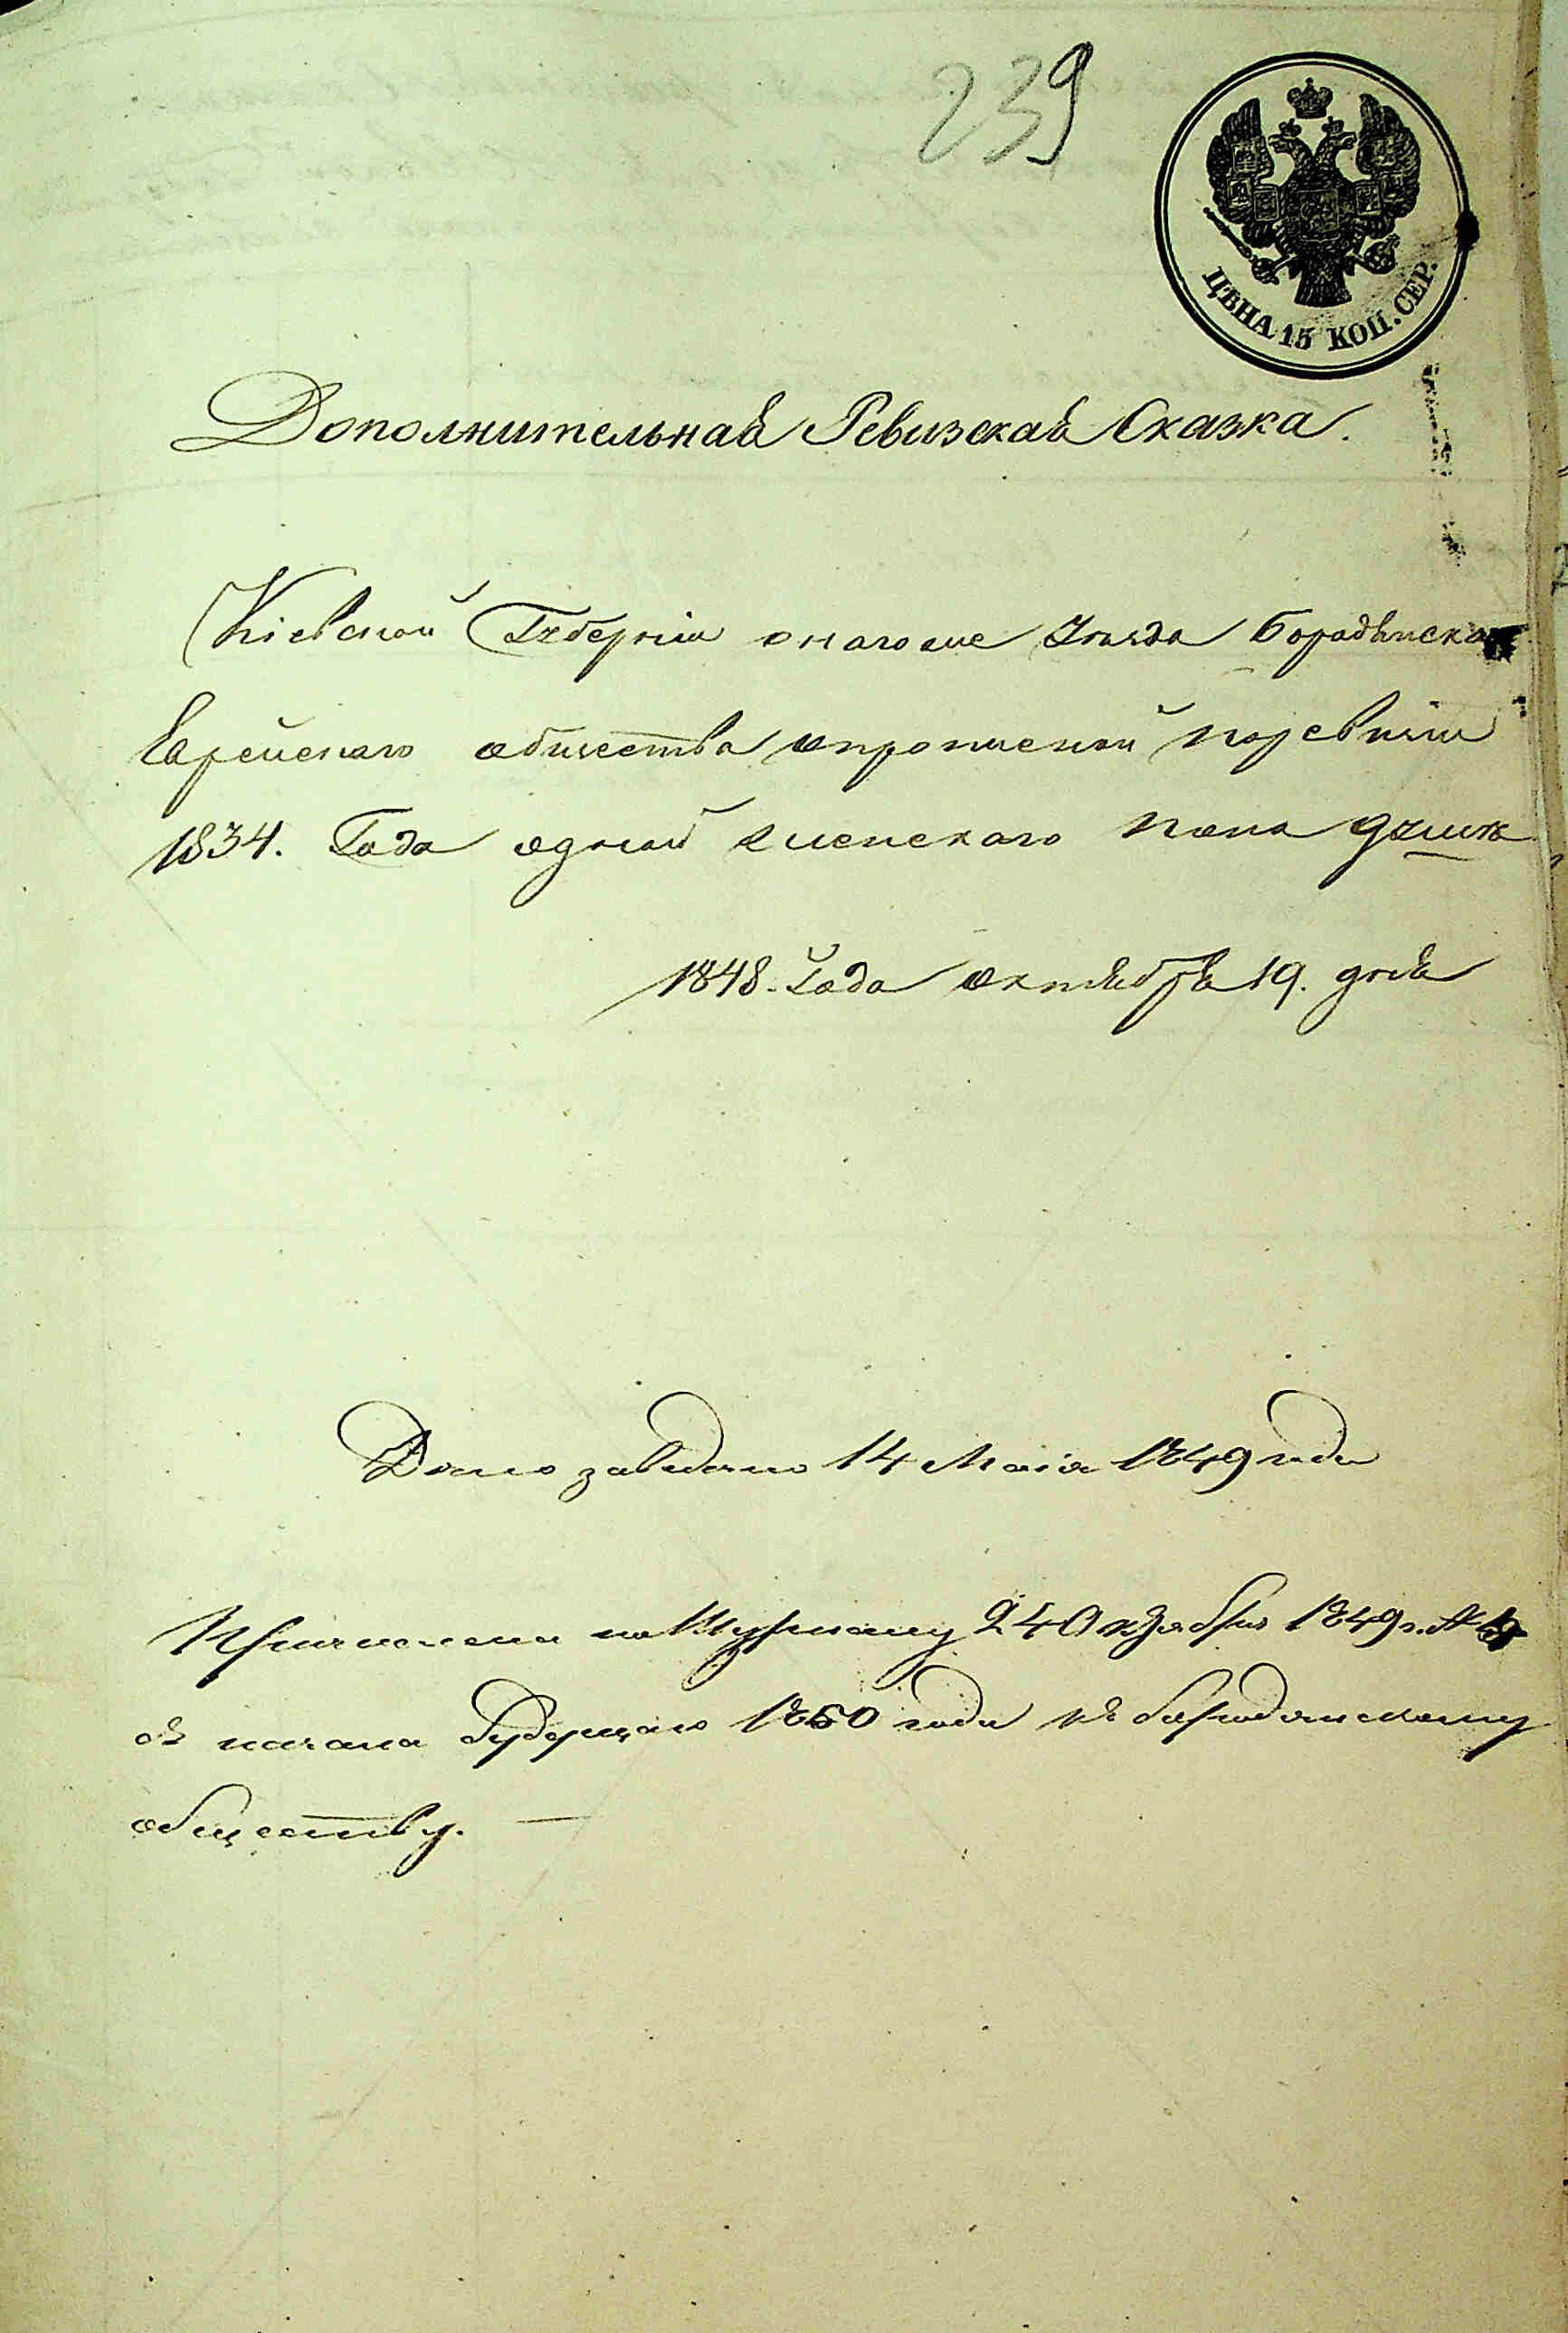 239
ЦѢНА 15 КОП. СЕР.
Дополнительная Ревизская Сказка.
Кіевской Губерніи оногоже Уезда Бородянска
Еврейскаго общества опрописной по ревизіи
1834. Года одной женскаго пола душѣ
1848. Года октября 19. дня
Дело заведено 14 Маія 1849 года
Причислена по Журналу 24 Октября 1849 г. №
съ начала будущаго 1850 года къ бородянскому
обществу. —